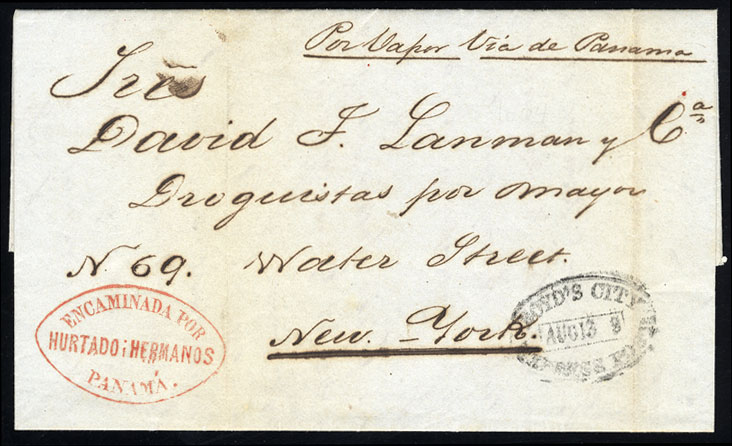 Por Vapor Via de Panama
Sres
David F. Lanman y Ca
Droguistas por mayor
N. 69. Water Street.
New-York.
ENCAMINADA POR
HURTADO i HERMANOS
PANAMÁ.
OYD'S CITY
AUG 13
EXPRESS POST